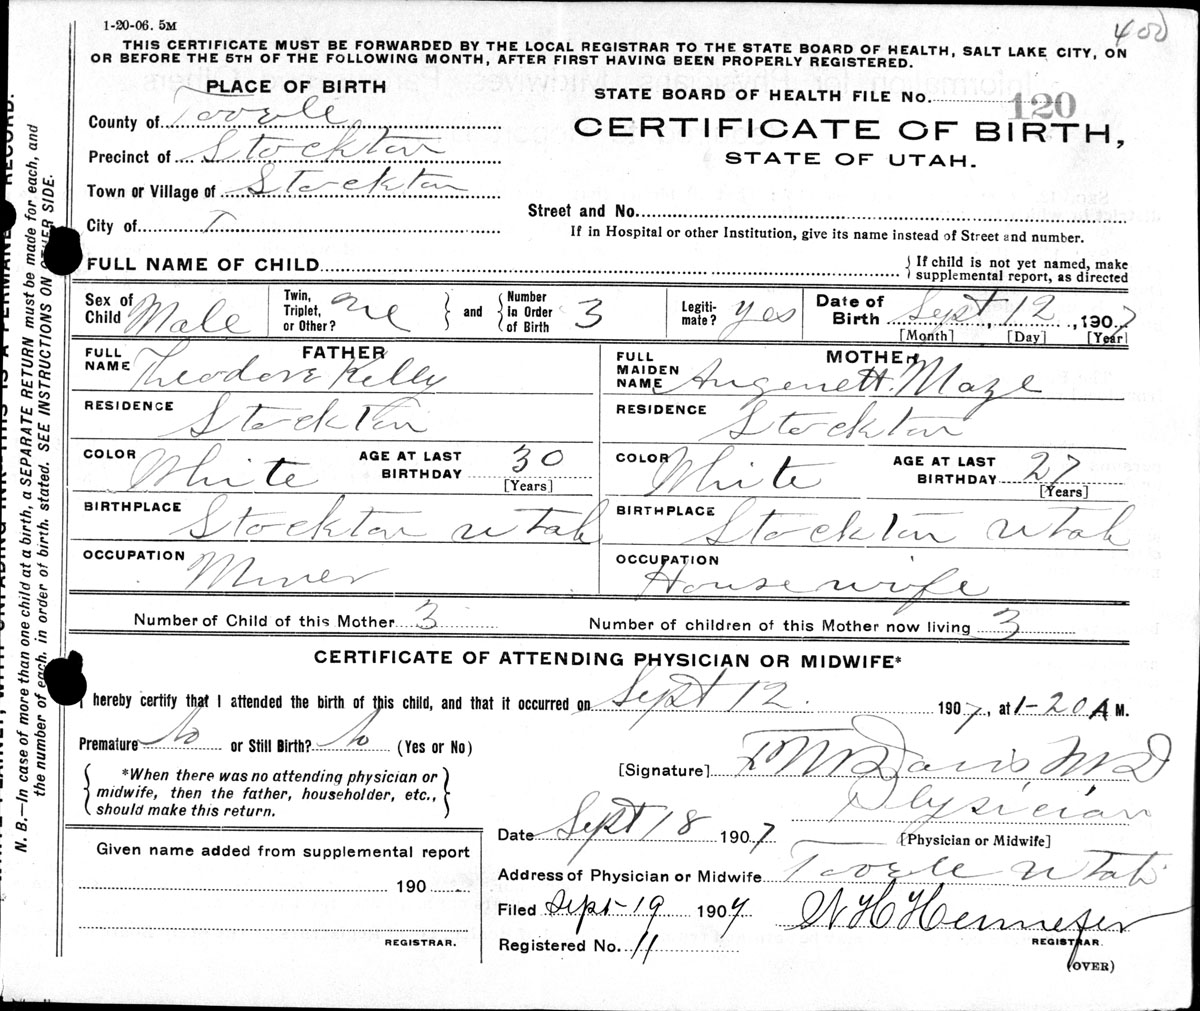 1-20-06. 5M
400
THIS CERTIFICATE MUST BE FORWARDED BY THE LOCAL REGISTRAR TO THE STATE BOARD OF HEALTH, SALT LAKE CITY, ON
OR BEFORE THE 5TH OF THE FOLLOWING MONTH, AFTER FIRST HAVING BEEN PROPERLY REGISTERED.
PLACE OF BIRTH
County of Tooele
Precinct of Stockton
Town or Village of Stockton
City of
STATE BOARD OF HEALTH FILE No. 120
CERTIFICATE OF BIRTH,
STATE OF UTAH.
Street and No.
If in Hospital or other Institution, give its name instead of Street and number.
FULL NAME OF CHILD
If child is not yet named, make
supplemental report, as directed
Sex of Child Male
Twin, Triplet, or Other? one
and
Number In Order of Birth 3
Legiti-mate? yes
Date of Birth Sept, 12, 1907
[Month] [Day] [Year]
FATHER
FULL NAME Theodore Kelly
RESIDENCE Stockton
COLOR White
AGE AT LAST BIRTHDAY 30
[Years]
BIRTHPLACE Stockton Utah
OCCUPATION Miner
MOTHER
FULL MAIDEN NAME Maze
RESIDENCE Stockton
COLOR White
AGE AT LAST BIRTHDAY 27
[Years]
BIRTHPLACE Stockton Utah
OCCUPATION Housewife
Number of Child of this Mother 3
Number of children of this Mother now living 3
CERTIFICATE OF ATTENDING PHYSICIAN OR MIDWIFE*
I hereby certify that I attended the birth of this child, and that it occurred on Sept 12. 1907, at 1-20 A M.
Premature No or Still Birth? No (Yes or No)
*When there was no attending physician or
midwife, then the father, householder, etc.,
should make this return.
[Signature] Davis MD
Physician
[Physician or Midwife]
Date Sept 18 1907
Address of Physician or Midwife Tooele Utah
Filed Sept-19 1907
Registered No. 11
Hennefer
REGISTRAR.
(OVER)
Given name added from supplemental report
190
REGISTRAR.
N. B.—In case of more than one child at a birth, a SEPARATE RETURN must be made for each, and
the number of each, in order of birth, stated. SEE INSTRUCTIONS ON OTHER SIDE.